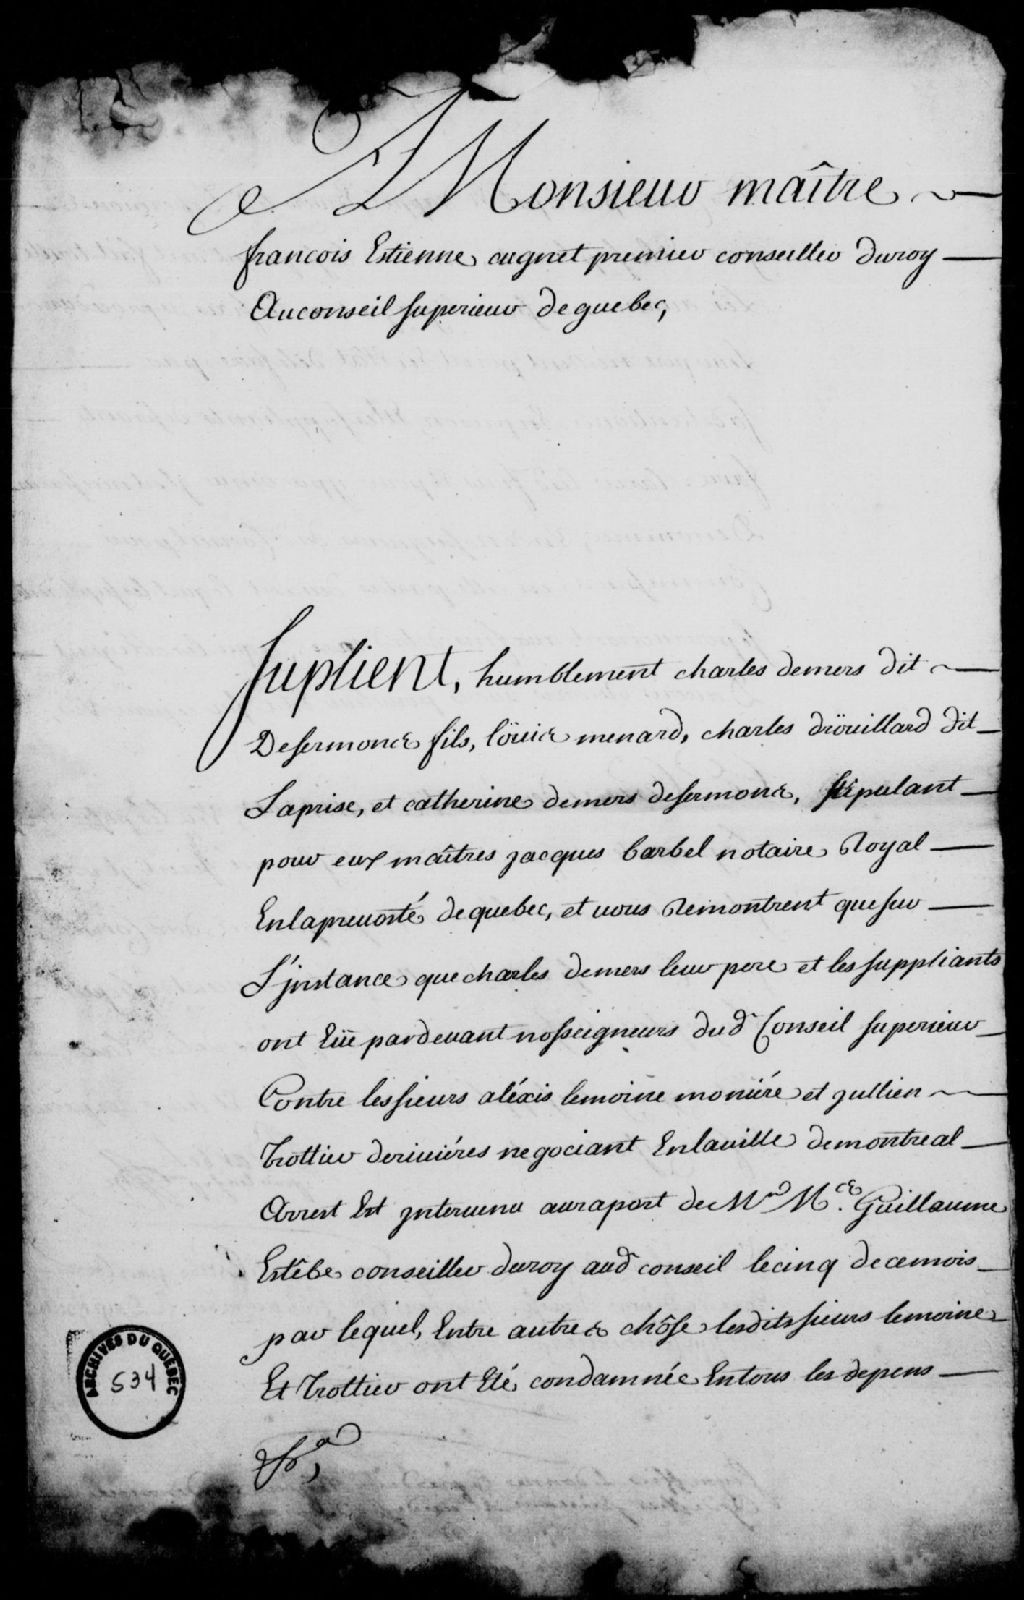 A Monsieur maître
francois Estienne cugnet premier conseiller duroy
Auconseil superieur de quebec,
Suplient, humblement charles demers dit
Desermons fils, loüis menard, charles droüillard dit
Laprise, et catherine demers desermons, stipulant
pour eux maîtres jacques barbel notaire Royal
Enlaprevosté de quebec, et vous Remontrent quesur
L'jnstance que charles demers leur pere et les suppliants
ont Eüe pardevant nosseigneurs dud Conseil superieur
Contre lessieurs aléxis lemoine moniére et jullien
trottier deriviéres negociant Enlaville de montreal
Arrest Est jntervenu auraport de Mr. Me. Guillaume
Estêbe conseiller duroy aud conseil lecinq decemois
par lequel, Entre autres chôse lesdits sieurs lemoine
Et trottier ont Eté condamnés Entous les depens
ARCHIVES DU QUÉBEC
534